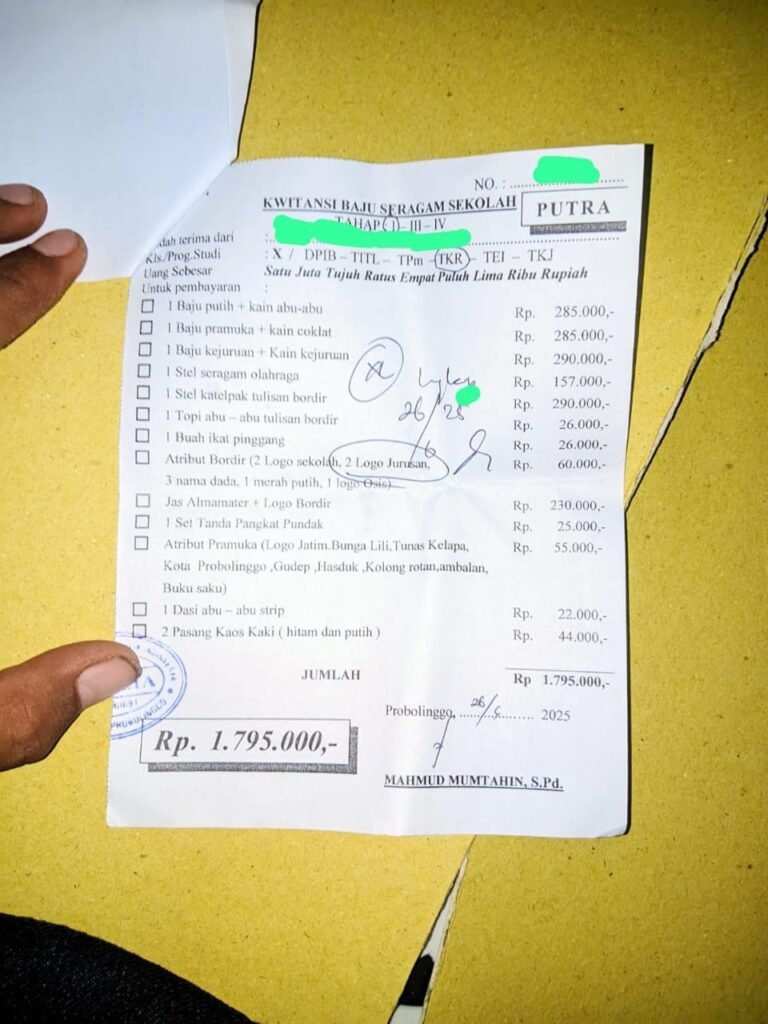 NO. :
KWITANSI BAJU SERAGAM SEKOLAH
PUTRA
TAHAP I - III - IV
dah terima dari :
Kls./Prog.Studi : X / DPIB – TITL – TPm – TKR – TEI – TKJ
Uang Sebesar Satu Juta Tujuh Ratus Empat Puluh Lima Ribu Rupiah
Untuk pembayaran :
1 Baju putih + kain abu-abu Rp. 285.000,-
1 Baju pramuka + kain coklat Rp. 285.000,-
1 Baju kejuruan + Kain kejuruan Rp. 290.000,-
1 Stel seragam olahraga Rp. 157.000,-
1 Stel katelpak tulisan bordir Rp. 290.000,-
1 Topi abu – abu tulisan bordir Rp. 26.000,-
1 Buah ikat pinggang Rp. 26.000,-
Atribut Bordir (2 Logo sekolah, 2 Logo Jurusan, Rp. 60.000,-
3 nama dada, 1 merah putih, 1 logo Osis)
XL
26/25
6
Jas Almamater + Logo Bordir Rp. 230.000,-
1 Set Tanda Pangkat Pundak Rp. 25.000,-
Atribut Pramuka (Logo Jatim.Bunga Lili,Tunas Kelapa, Rp. 55.000,-
Kota Probolinggo ,Gudep ,Hasduk ,Kolong rotan,ambalan,
Buku saku)
1 Dasi abu – abu strip Rp. 22.000,-
2 Pasang Kaos Kaki ( hitam dan putih ) Rp. 44.000,-
JUMLAH Rp 1.795.000,-
PROBOLINGGO
Probolinggo, 26/5 2025
Rp. 1.795.000,-
MAHMUD MUMTAHIN, S.Pd.